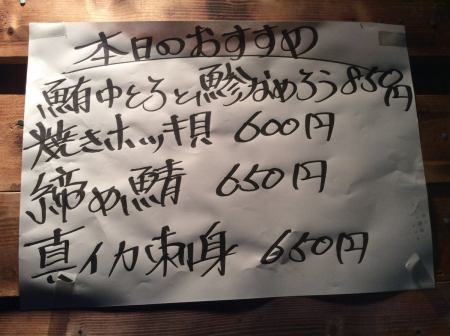 本日のおすすめ
鮪中とろと鯵なめろう850円
焼きホッキ貝 600円
締め鯖 650円
真イカ刺身 650円